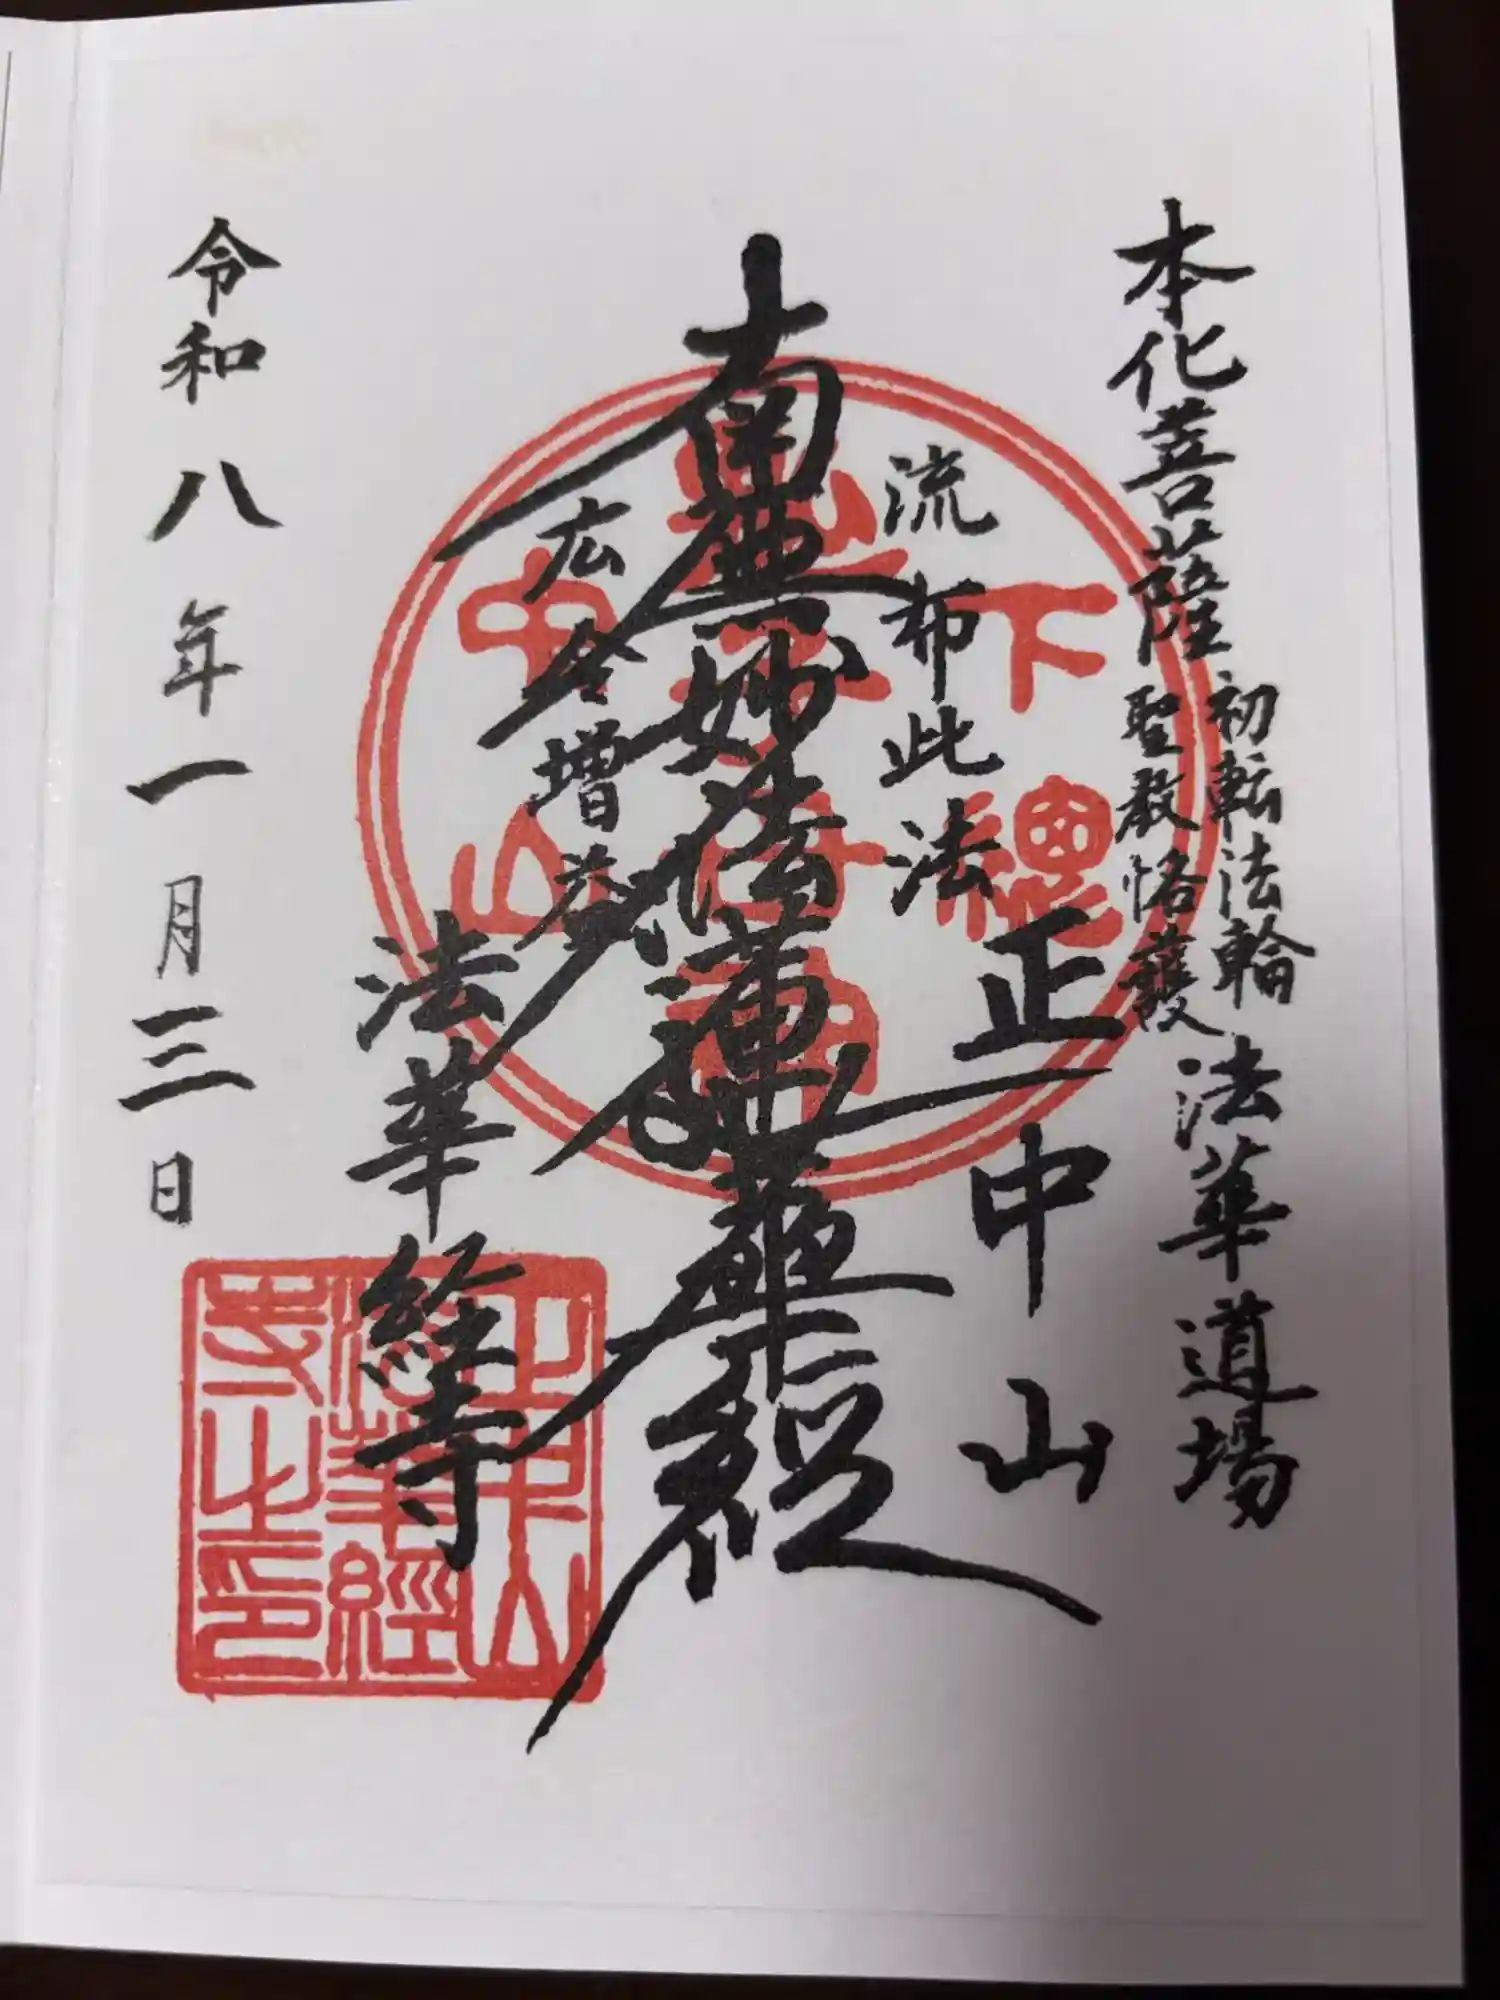 本化菩薩
初転法輪
聖教恪護
法華道場
正中山
流布此法
南無妙法蓮華経
広令増益
法華経寺
令和八年一月三日
下總
中山
正中山
法華經
寺之印